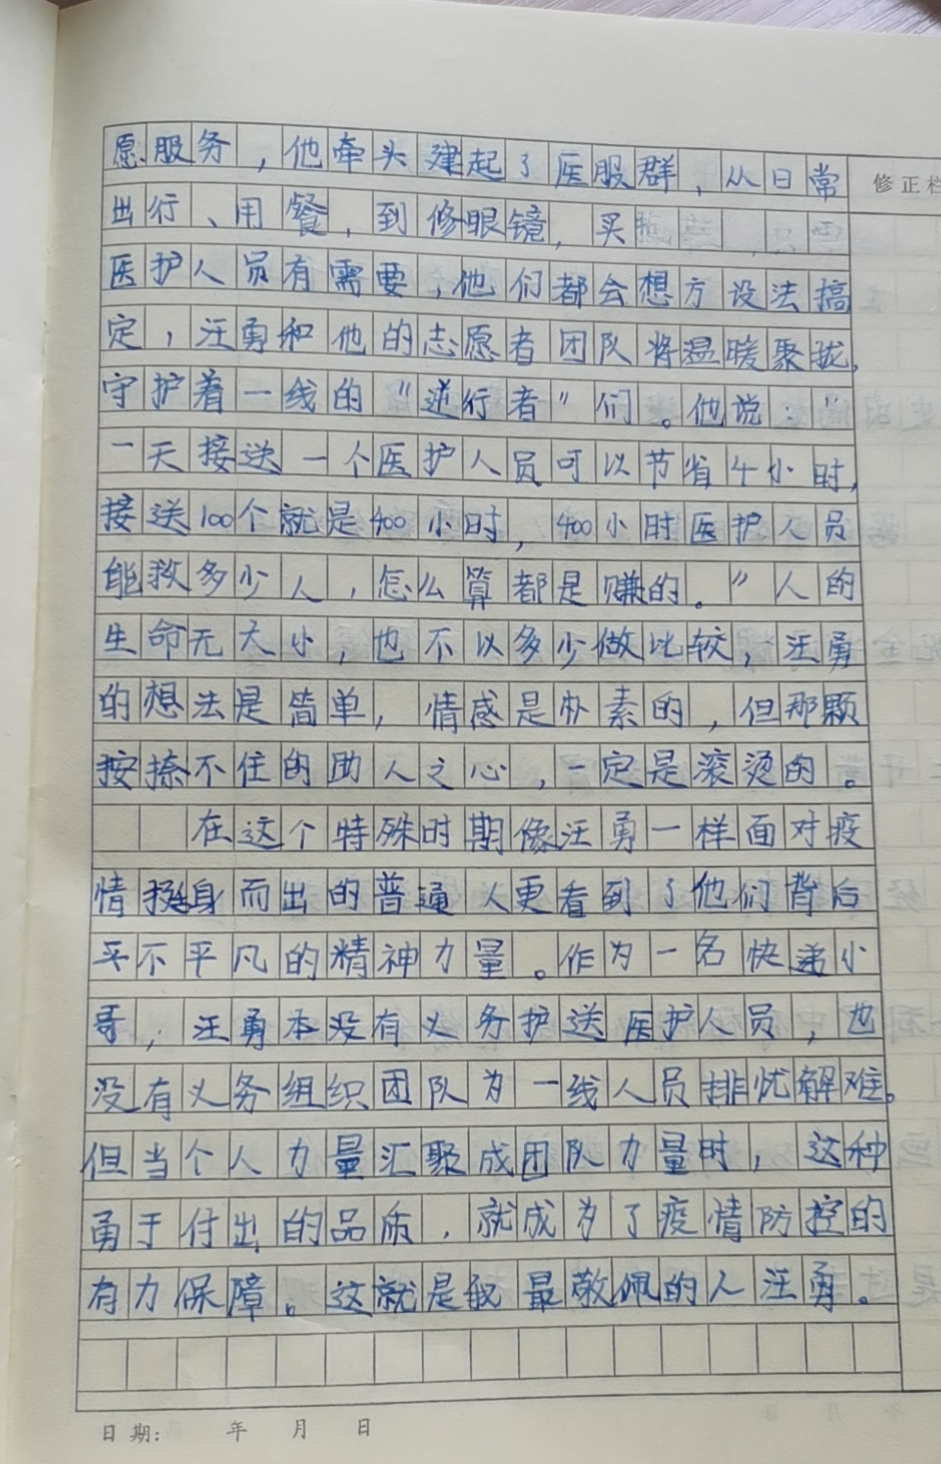 愿服务，他牵头建起了医服群，从日常
修正栏
出行、用餐，到修眼镜，买
医护人员有需要，他们都会想方设法搞
定，汪勇和他的志愿者团队将温暖聚拢，
守护着一线的“逆行者”们。他说：“
一天接送一个医护人员可以节省4小时，
接送100个就是400小时，400小时医护人员
能救多少人，怎么算都是赚的。”人的
生命无大小，也不以多少做比较，汪勇
的想法是简单，情感是朴素的，但那颗
按捺不住的助人之心，一定是滚烫的。
在这个特殊时期像汪勇一样面对疫
情挺身而出的普通人更看到了他们背后
平不平凡的精神力量。作为一名快递小
哥，汪勇本没有义务护送医护人员，也
没有义务组织团队为一线人员排忧解难。
但当个人力量汇聚成团队力量时，这种
勇于付出的品质，就成为了疫情防控的
有力保障。这就是我最敬佩的人汪勇。
日期： 年 月 日